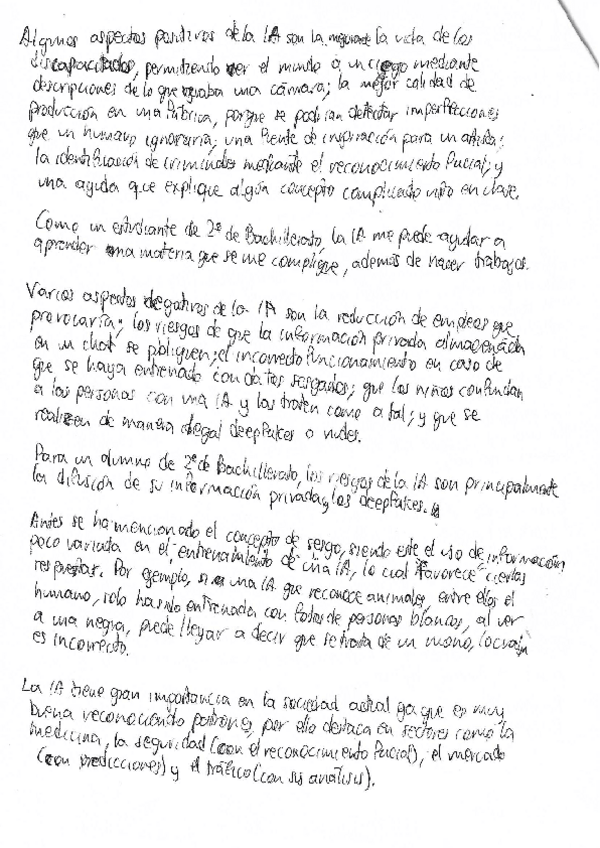 Algunos aspectos positivos de la IA son la mejora de la vida de los
discapacitados, permitiendo ver el mundo a un ciego mediante
descripciones de lo que grababa una cámara; la mejor calidad de
producción en una fábrica, porque se podrían detectar imperfecciones
que un humano ignoraría; una fuente de inspiración para un artista;
la identificación de criminales mediante el reconocimiento facial; y
una ayuda que explique algún concepto complicado visto en clase.
Como un estudiante de 2º de Bachillerato, la IA me puede ayudar a
aprender una materia que se me complique, además de hacer trabajos.
Varios aspectos negativos de la IA son la reducción de empleos que
provocaría; los riesgos de que la información privada almacenada
en un chat se publiquen; el incorrecto funcionamiento en caso de
que se haya entrenado con datos sesgados; que los niños confundan
a las personas con una IA y las traten como a tal; y que se
realicen de manera ilegal deepfakes o nudes.
Para un alumno de 2º de Bachillerato, los riesgos de la IA son principalmente
la difusión de su información privada y los deepfakes.
Antes se ha mencionado el concepto de sesgo, siendo este el uso de información
poco variada en el entrenamiento de una IA, lo cual favorece ciertas
respuestas. Por ejemplo, si una IA que reconoce animales, entre ellos el
humano, solo ha sido entrenada con fotos de personas blancas, al ver
a una negra, puede llegar a decir que se trata de un mono, lo cual
es incorrecto.
La IA tiene gran importancia en la sociedad actual ya que es muy
buena reconociendo patrones, por ello destaca en sectores como la
medicina, la seguridad (con el reconocimiento facial), el mercado
(con predicciones) y el tráfico (con sus análisis).